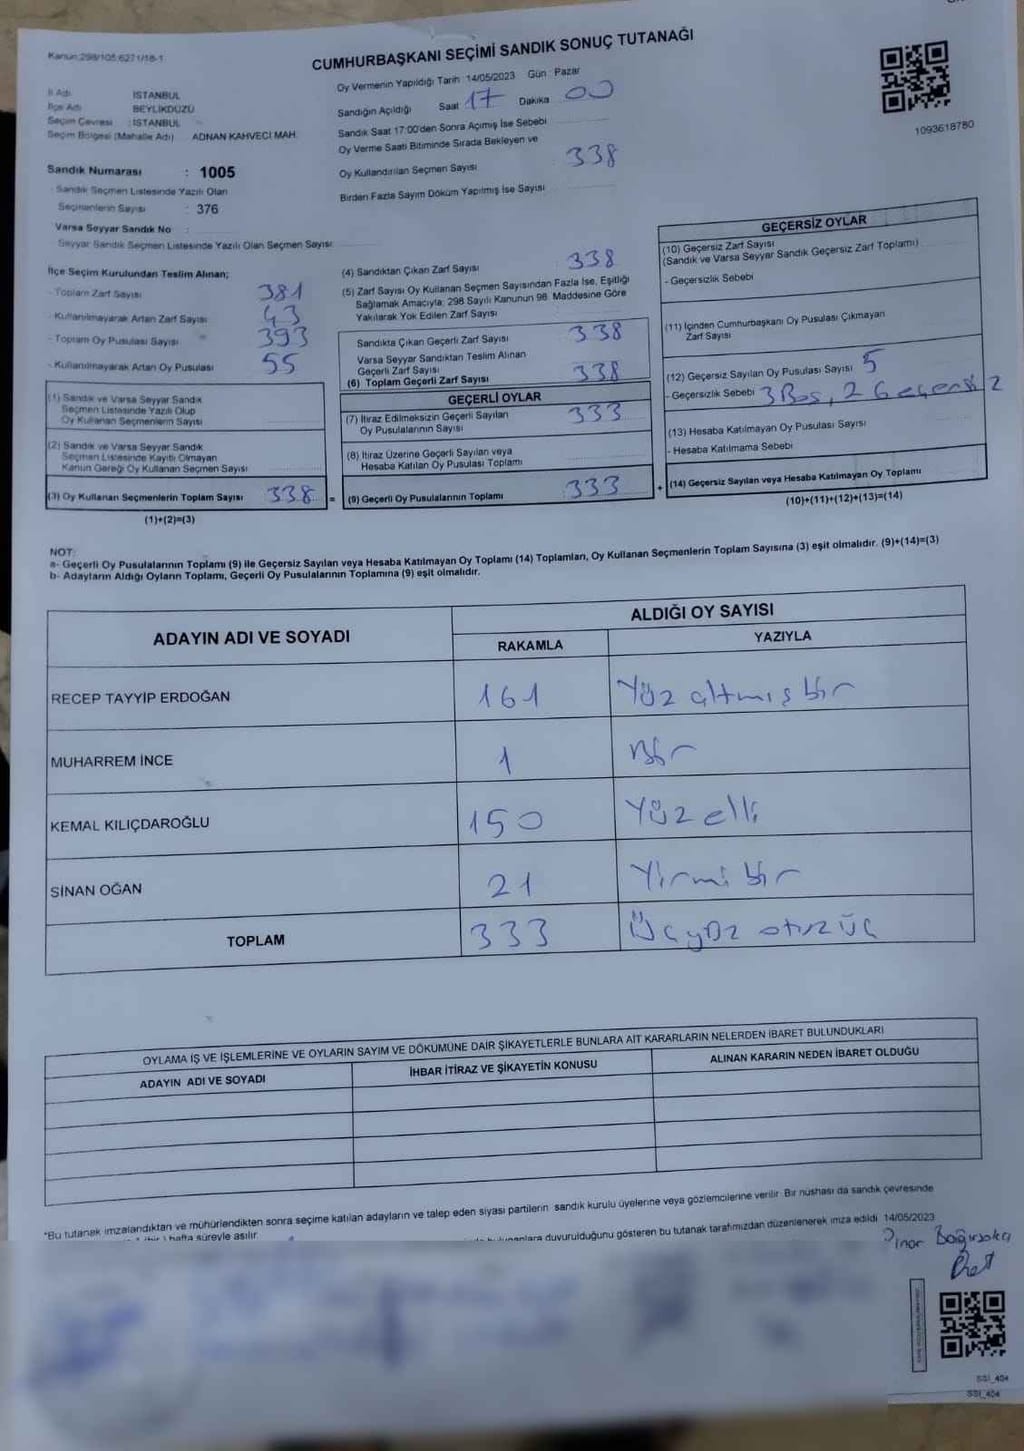 Kanun:298/105 6271/18-1
CUMHURBAŞKANI SEÇİMİ SANDIK SONUÇ TUTANAĞI
İl Adı : İSTANBUL
İlçe Adı : BEYLİKDÜZÜ
Seçim Çevresi : İSTANBUL
Seçim Bölgesi (Mahalle Adı) ADNAN KAHVECİ MAH.
Oy Vermenin Yapıldığı Tarih : 14/05/2023 Gün : Pazar
Sandığın Açıldığı Saat 17 Dakika 00
Sandık Saat 17:00'den Sonra Açımış İse Sebebi
Oy Verme Saati Bitiminde Sırada Bekleyen ve
Oy Kullandırılan Seçmen Sayısı 338
Birden Fazla Sayım Döküm Yapılmış İse Sayısı
1093618780
Sandık Numarası : 1005
Sandık Seçmen Listesinde Yazılı Olan
Seçmenlerin Sayısı : 376
Varsa Seyyar Sandık No :
Seyyar Sandık Seçmen Listesinde Yazılı Olan Seçmen Sayısı:
İlçe Seçim Kurulundan Teslim Alınan;
- Toplam Zarf Sayısı 381
- Kullanılmayarak Artan Zarf Sayısı 43
- Toplam Oy Pusulası Sayısı 393
- Kullanılmayarak Artan Oy Pusulası 55
(1) Sandık ve Varsa Seyyar Sandık
Seçmen Listesinde Yazılı Olup
Oy Kullanan Seçmenlerin Sayısı
(2) Sandık ve Varsa Seyyar Sandık
Seçmen Listesinde Kayıtlı Olmayan
Kanun Gereği Oy Kullanan Seçmen Sayısı
(3) Oy Kullanan Seçmenlerin Toplam Sayısı 338 =
(1)+(2)=(3)
(4) Sandıktan Çıkan Zarf Sayısı 338
(5) Zarf Sayısı Oy Kullanan Seçmen Sayısından Fazla İse, Eşitliği
Sağlamak Amacıyla; 298 Sayılı Kanunun 98. Maddesine Göre
Yakılarak Yok Edilen Zarf Sayısı
Sandıkta Çıkan Geçerli Zarf Sayısı 338
Varsa Seyyar Sandıktan Teslim Alınan
Geçerli Zarf Sayısı
(6) Toplam Geçerli Zarf Sayısı 338
GEÇERLİ OYLAR
(7) İtiraz Edilmeksizin Geçerli Sayılan
Oy Pusulalarının Sayısı 333
(8) İtiraz Üzerine Geçerli Sayılan veya
Hesaba Katılan Oy Pusulası Toplamı
(9) Geçerli Oy Pusulalarının Toplamı 333 +
GEÇERSİZ OYLAR
(10) Geçersiz Zarf Sayısı
(Sandık ve Varsa Seyyar Sandık Geçersiz Zarf Toplamı)
- Geçersizlik Sebebi
(11) İçinden Cumhurbaşkanı Oy Pusulası Çıkmayan
Zarf Sayısı
(12) Geçersiz Sayılan Oy Pusulası Sayısı 5
- Geçersizlik Sebebi 3 Boş, 2 Geçersiz
(13) Hesaba Katılmayan Oy Pusulası Sayısı
- Hesaba Katılmama Sebebi
(14) Geçersiz Sayılan veya Hesaba Katılmayan Oy Toplamı
(10)+(11)+(12)+(13)=(14)
NOT:
a- Geçerli Oy Pusulalarının Toplamı (9) ile Geçersiz Sayılan veya Hesaba Katılmayan Oy Toplamı (14) Toplamları, Oy Kullanan Seçmenlerin Toplam Sayısına (3) eşit olmalıdır. (9)+(14)=(3)
b- Adayların Aldığı Oyların Toplamı, Geçerli Oy Pusulalarının Toplamına (9) eşit olmalıdır.
ADAYIN ADI VE SOYADI
ALDIĞI OY SAYISI
RAKAMLA YAZIYLA
RECEP TAYYİP ERDOĞAN 161 Yüz altmış bir
MUHARREM İNCE 1 Bir
KEMAL KILIÇDAROĞLU 150 Yüz elli
SİNAN OĞAN 21 Yirmi bir
TOPLAM 333 Üçyüz otuz üç
OYLAMA İŞ VE İŞLEMLERİNE VE OYLARIN SAYIM VE DÖKÜMÜNE DAİR ŞİKAYETLERLE BUNLARA AİT KARARLARIN NELERDEN İBARET BULUNDUKLARI
ADAYIN ADI VE SOYADI İHBAR İTİRAZ VE ŞİKAYETİN KONUSU ALINAN KARARIN NEDEN İBARET OLDUĞU
*Bu tutanak imzalandıktan ve mühürlendikten sonra seçime katılan adayların ve talep eden siyasi partilerin sandık kurulu üyelerine veya gözlemcilerine verilir. Bir nüshası da sandık çevresinde
hafta süreyle asılır.
duyurulduğunu gösteren bu tutanak tarafımızdan düzenlenerek imza edildi. 14/05/2023
Pınar
SSİ_404
SSİ_404